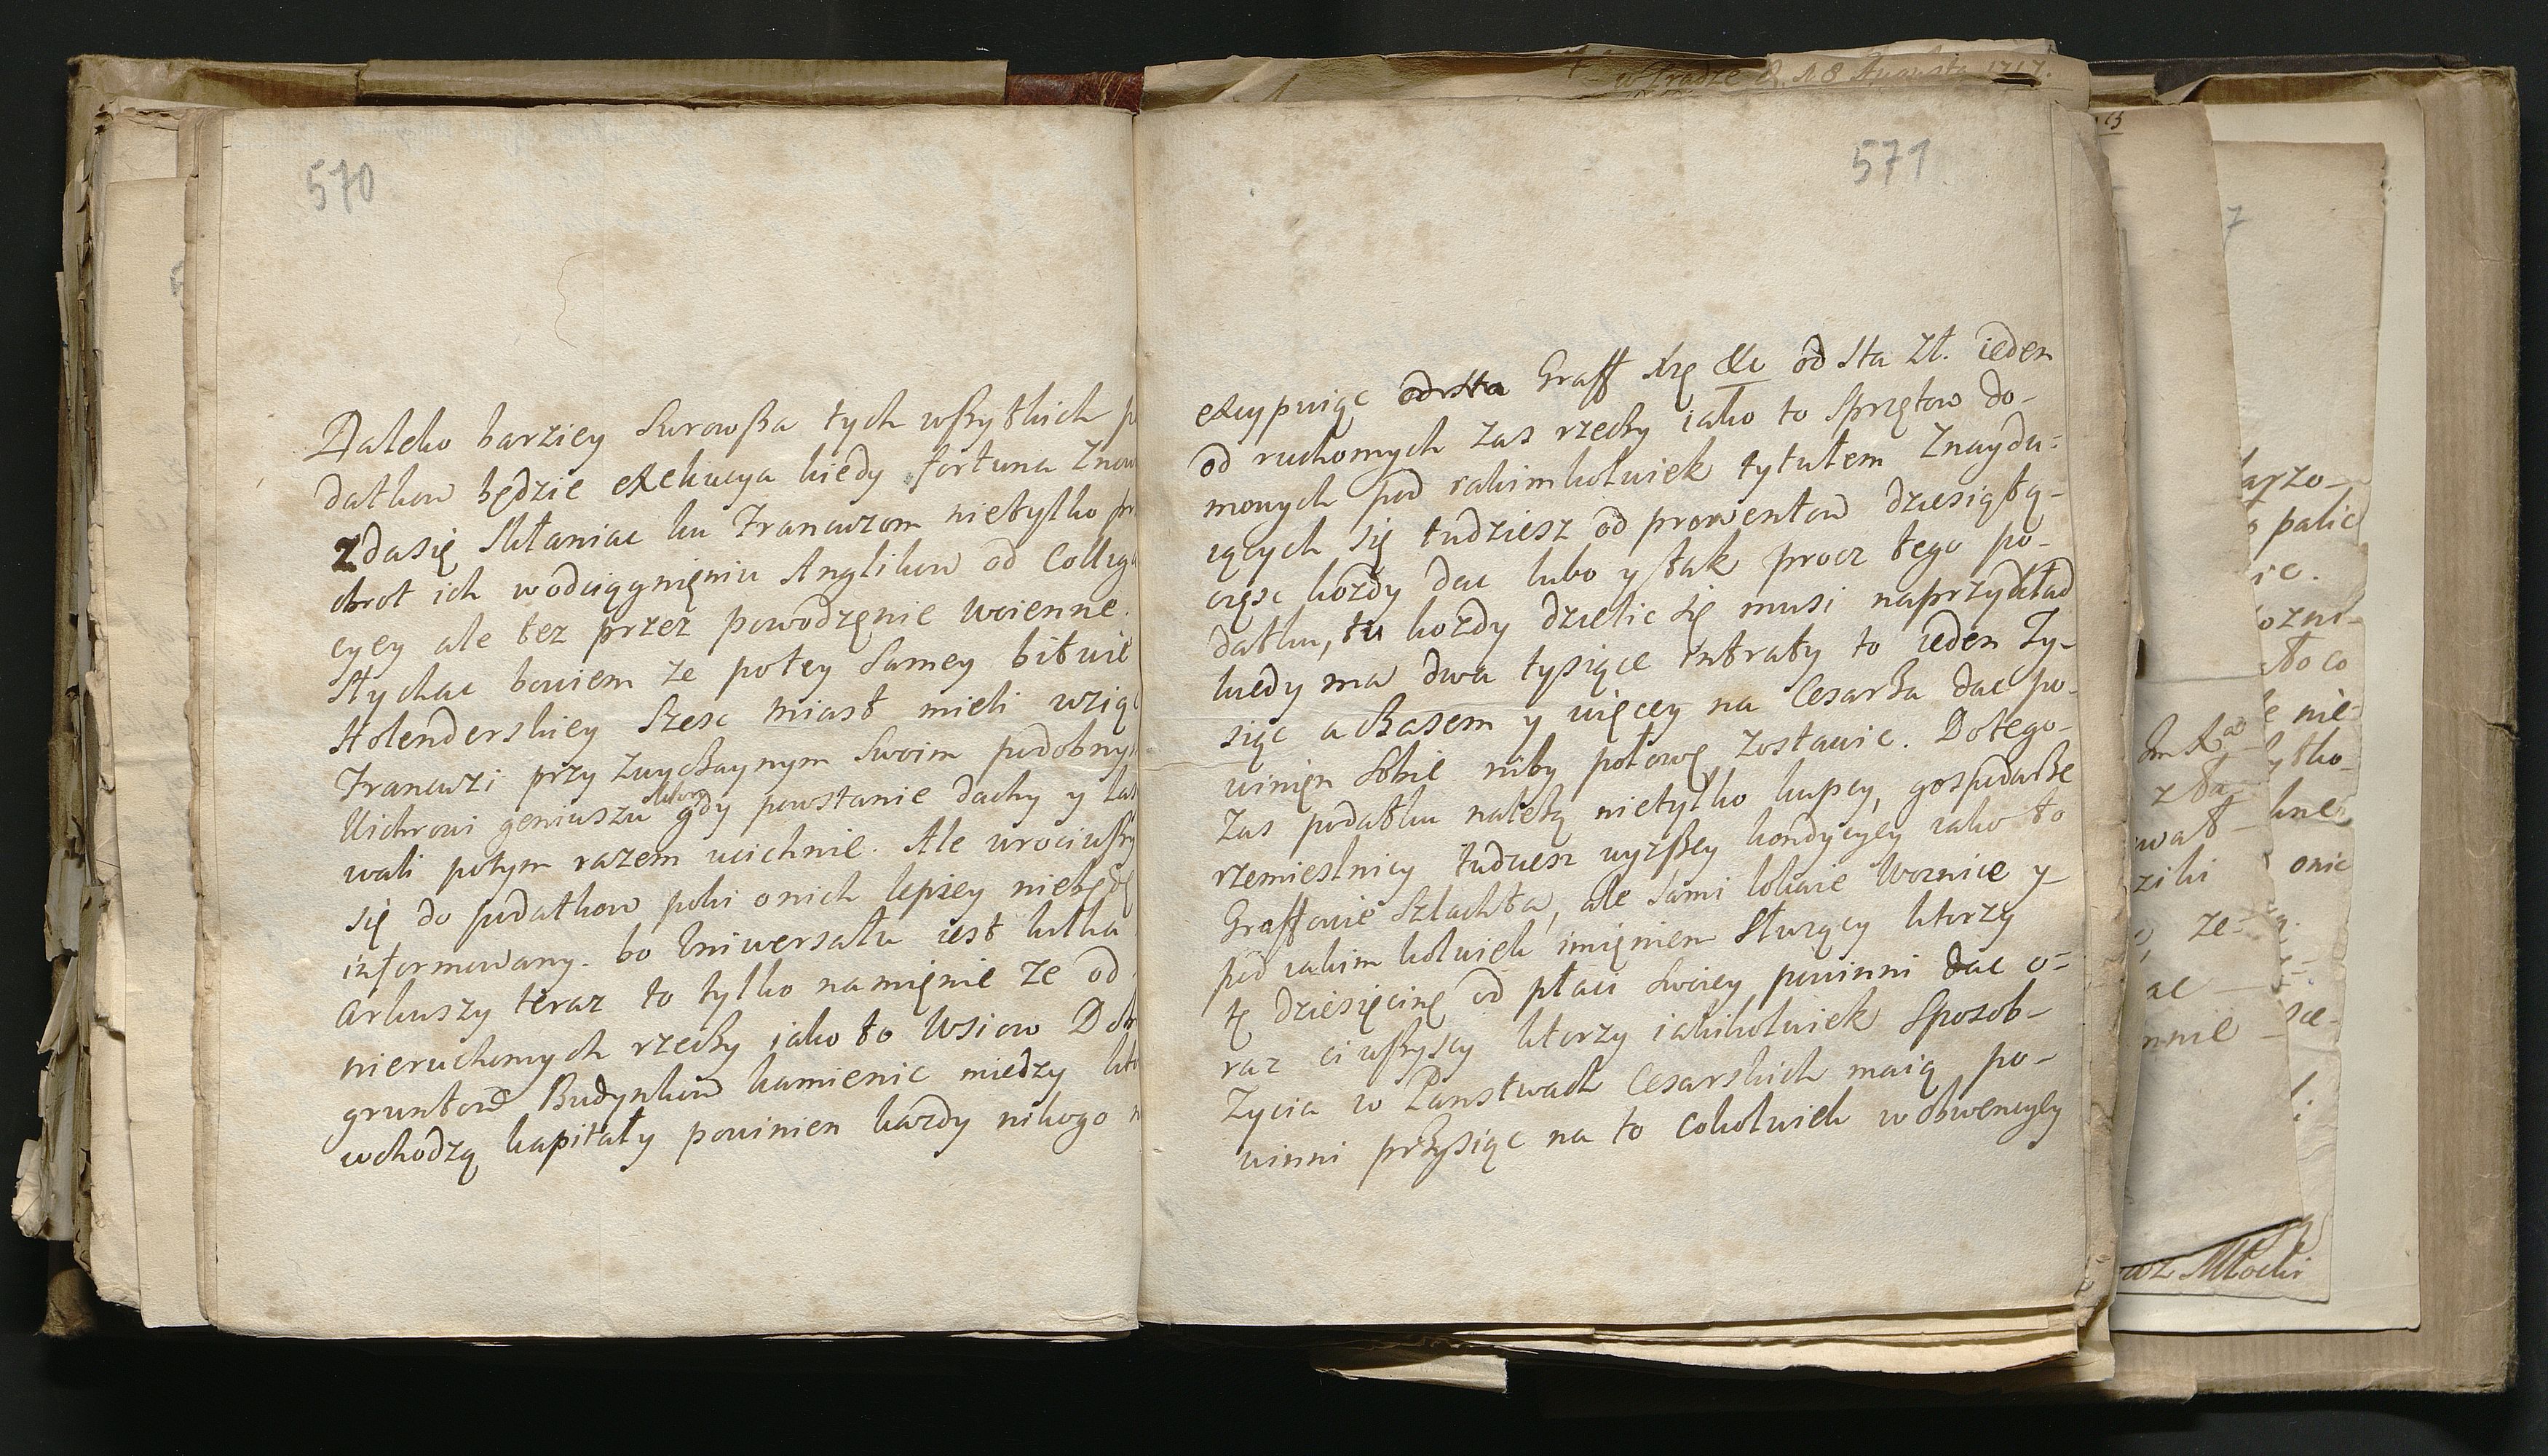 570
Daleko barziey surowsza tych wszytkich p
datkow będzie exekucya kiedy fortuna znow
zdasię skłaniac ku Francuzom nietylko pr
obrot ich wodciągnięniu Anglikow od Colliga
cyey ale tez przez powodzęnie woienne.
Słychac bowiem ze potey samey bitwie
Holenderskiey szesc miast mieli wziąc
Francuzi przy zwyczaynym swoim podobny
Wichrowi geniuszu ktory gdy powstanie dachy y
wali potym razem ucichnie. Ale wrociwszy
się do podatkow poki onich lepiey niebędę
informowany. bo Uniwersału iest kilka
arkuszy teraz to tylko namięnie ze od
nieruchomych rzeczy iako to Wsiow Dobr
gruntow Budynkow kamienic między kto
wchodzą kapitały powinien kazdy nikogo n
w Gradze d. 18 Augusta 1717.
571
excypuiąc odsta Graff Xzę &c od sta zł. ieden
od ruchomych zas rzeczy iako to sprzętow do-
mowych pod iakimkolwiek tytułem znaydu=
iących się tudziesz od prowentow dziesiątą-
częsc kozdy dac lubo y tak procz tego po-
datku, tu kozdy dzielic się musi naprzykład
kiedy ma dwa tysiące intraty to ieden Ty-
siąc a czasem y więcey na Cesarza dac po-
winięn sobie niby połowę zostawic. Dotego-
zas podatku nalezą nietylko kupcy, gospodarze
rzemieslnicy tudziesz wyzszey kondycyey iako to
Graffowie Szlachta, ale sami lokaie Woznice y-
pod iakim kolwiek imięniem słuzący ktorzy
tę dziesięcinę od płaci swoiey powinni dac o=
raz ci wszyscy ktorzy iakikolwiek sposob-
zycia w Panstwach Cesarskich maią po-
winni przysiąc na to cokolwiek w obwencyey
arzo-
palic
ozni-
to co
nie-
ytko-
onic
ze-
ac
mnie
Młocki